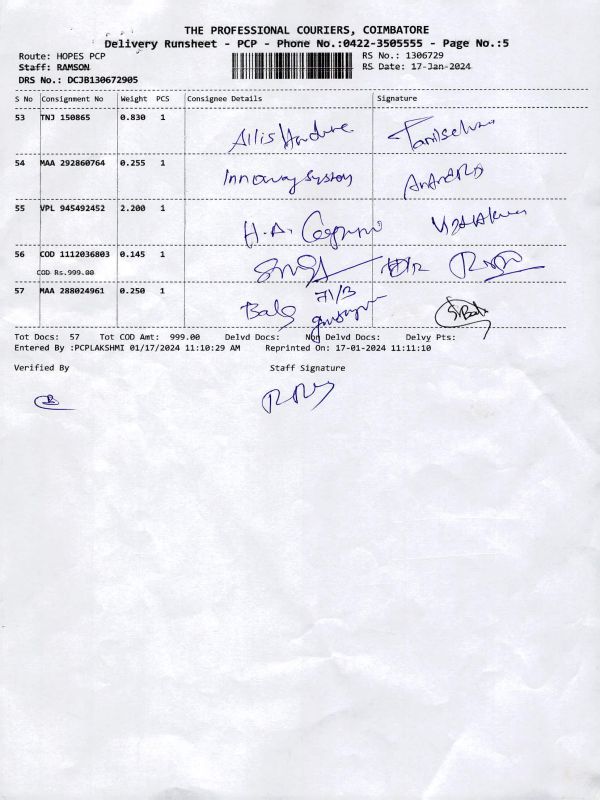 THE PROFESSIONAL COURIERS, COIMBATORE
Delivery Runsheet - PCP - Phone No.:0422-3505555 - Page No.:5
Route: HOPES PCP RS No.: 1306729
Staff: RAMSON RS Date: 17-Jan-2024
DRS No.: DCJB130672905
S No Consignment No Weight PCS Consignee Details Signature
53 TNJ 150865 0.830 1
54 MAA 292860764 0.255 1 System
55 VPL 945492452 2.200 1 H.A.
56 COD 1112036803 0.145 1
COD Rs.999.00
57 MAA 288024961 0.250 1 71/3
Tot Docs: 57 Tot COD Amt: 999.00 Delvd Docs: Non Delvd Docs: Delvy Pts:
Entered By :PCPLAKSHMI 01/17/2024 11:10:29 AM Reprinted On: 17-01-2024 11:11:10
Verified By Staff Signature